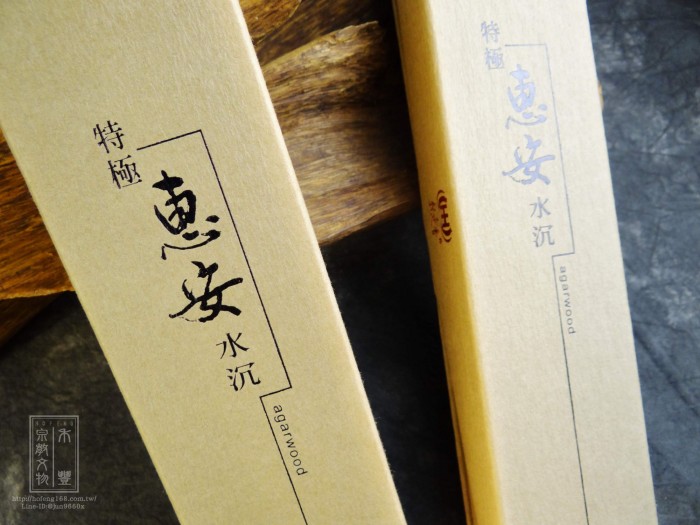 特極
惠安
水沉
agarwood
特極
惠安
水沉
agarwood
禾豐
宗教文物
http://hofong168.com.tw/